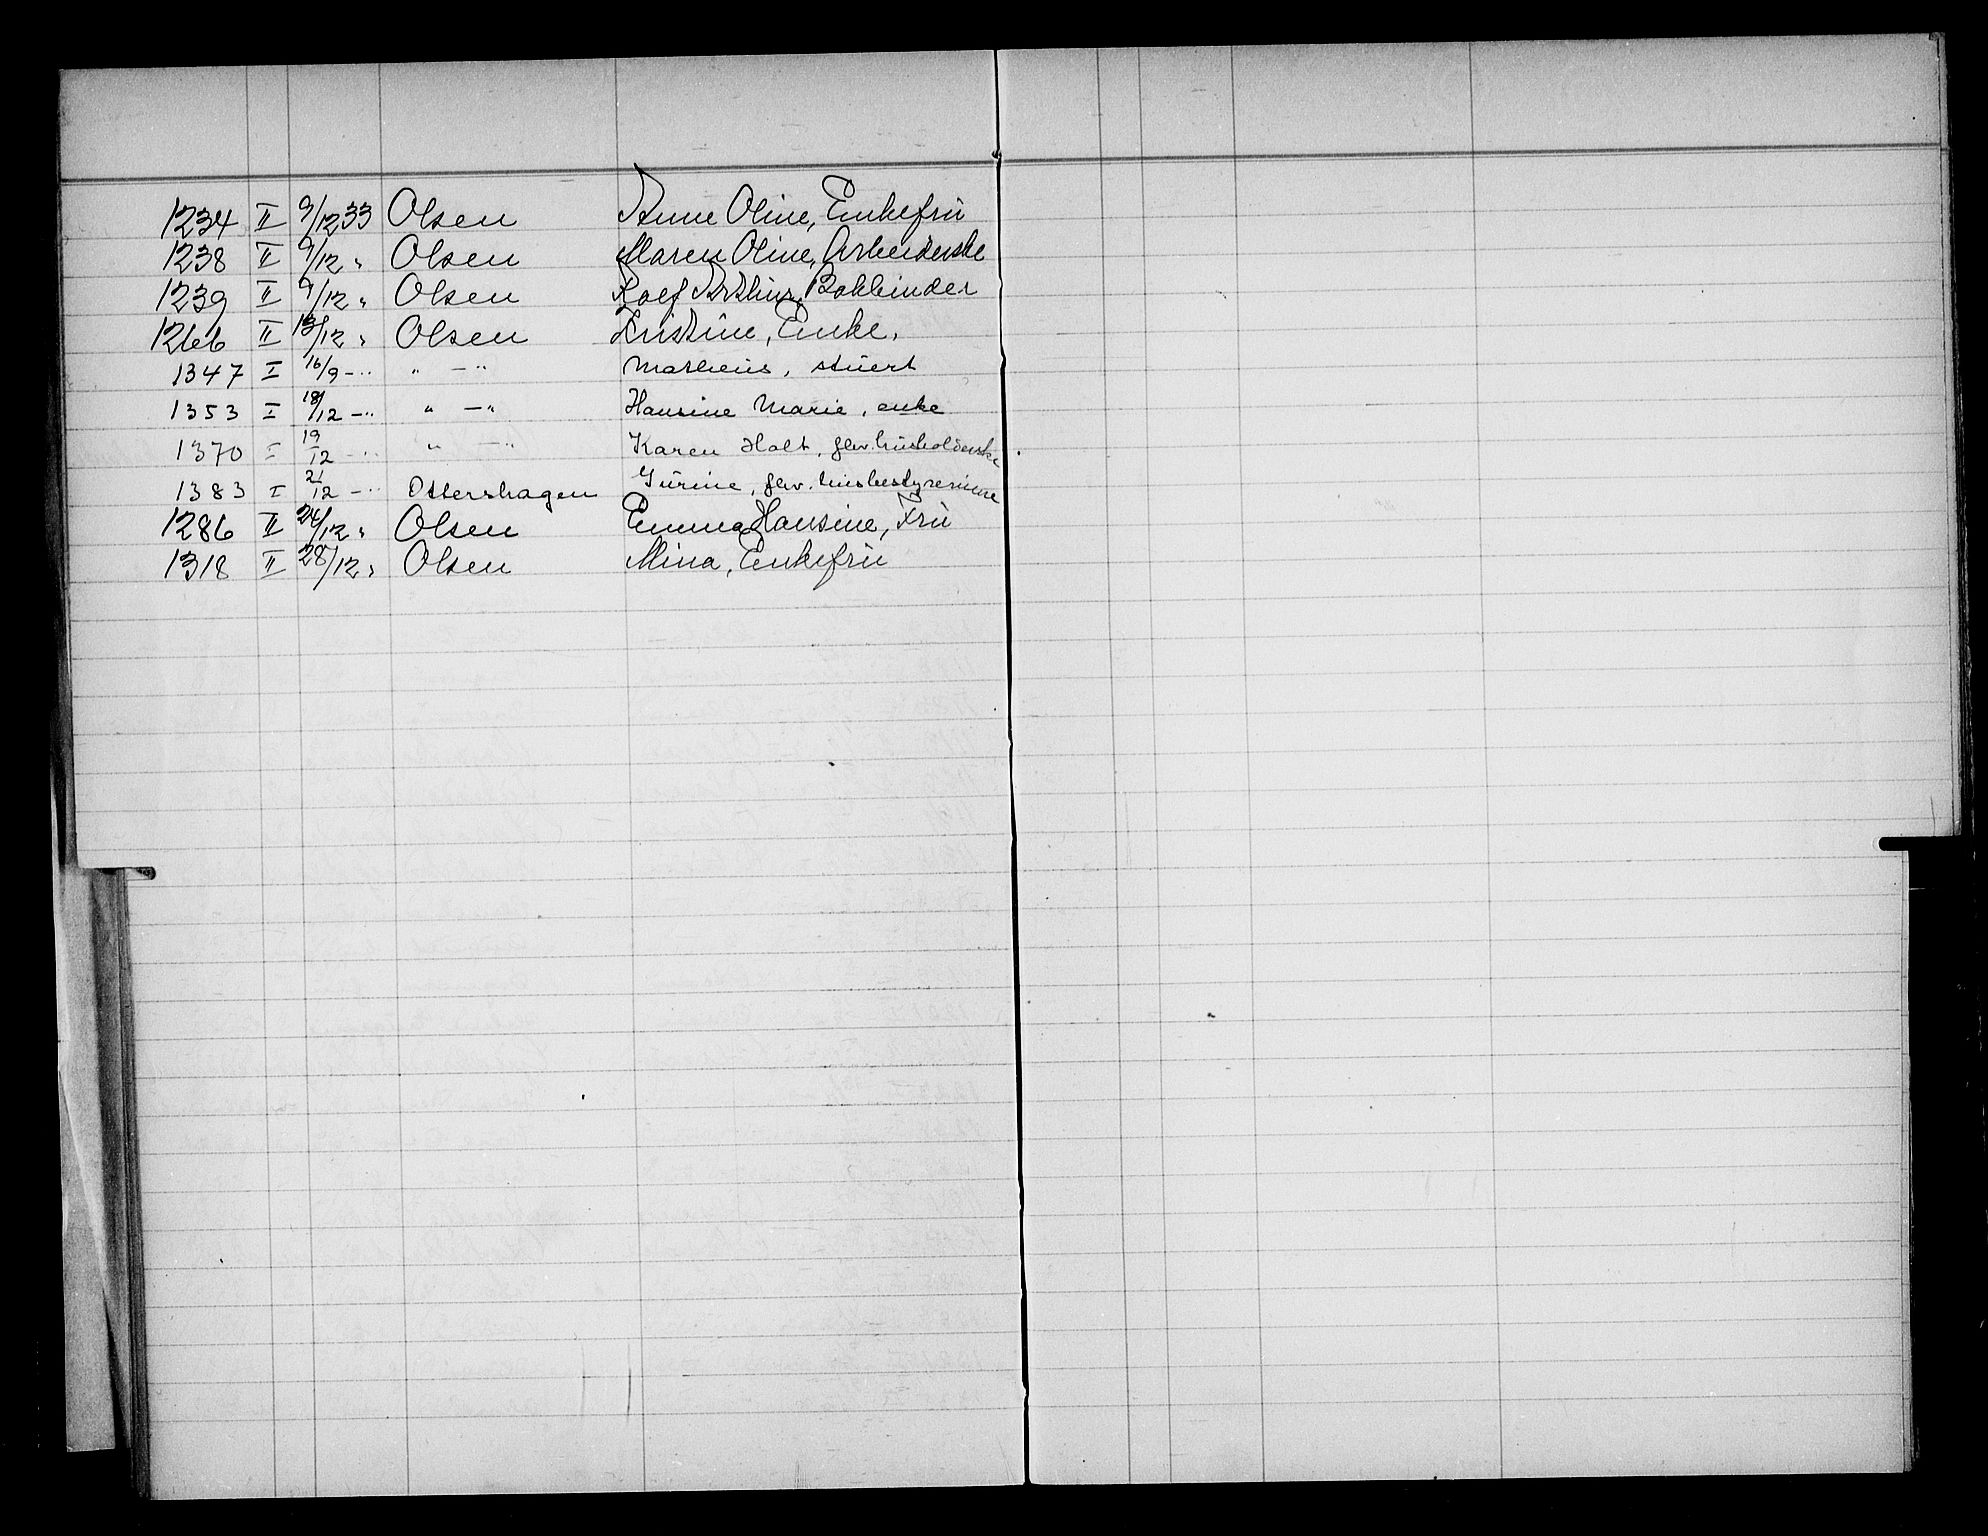 1234 II 9/12 33 Olsen Anne Oline, Enkefrü
1238 II 9/12 " Olsen Maren Oline, Arbeiderske
1239 II 9/12 " Olsen Rolf Arthur, Bokbinder
1266 II 13/12 " Olsen Kristine, Enke.
1347 I 16/9 -" " -" Matheus, stüert
1353 I 18/12 -" " -" Hansine Marie, enke
1370 I 19/12 -" " -" Karen Holt, ghv. hüsholderske
1383 I 21/12 -" Ottershagen Gürine, ghv. hüsbestyrerinne
1286 II 24/12 " Olsen Emma Hansine, Frü
1318 II 28/12 " Olsen Mina, Enkefrü